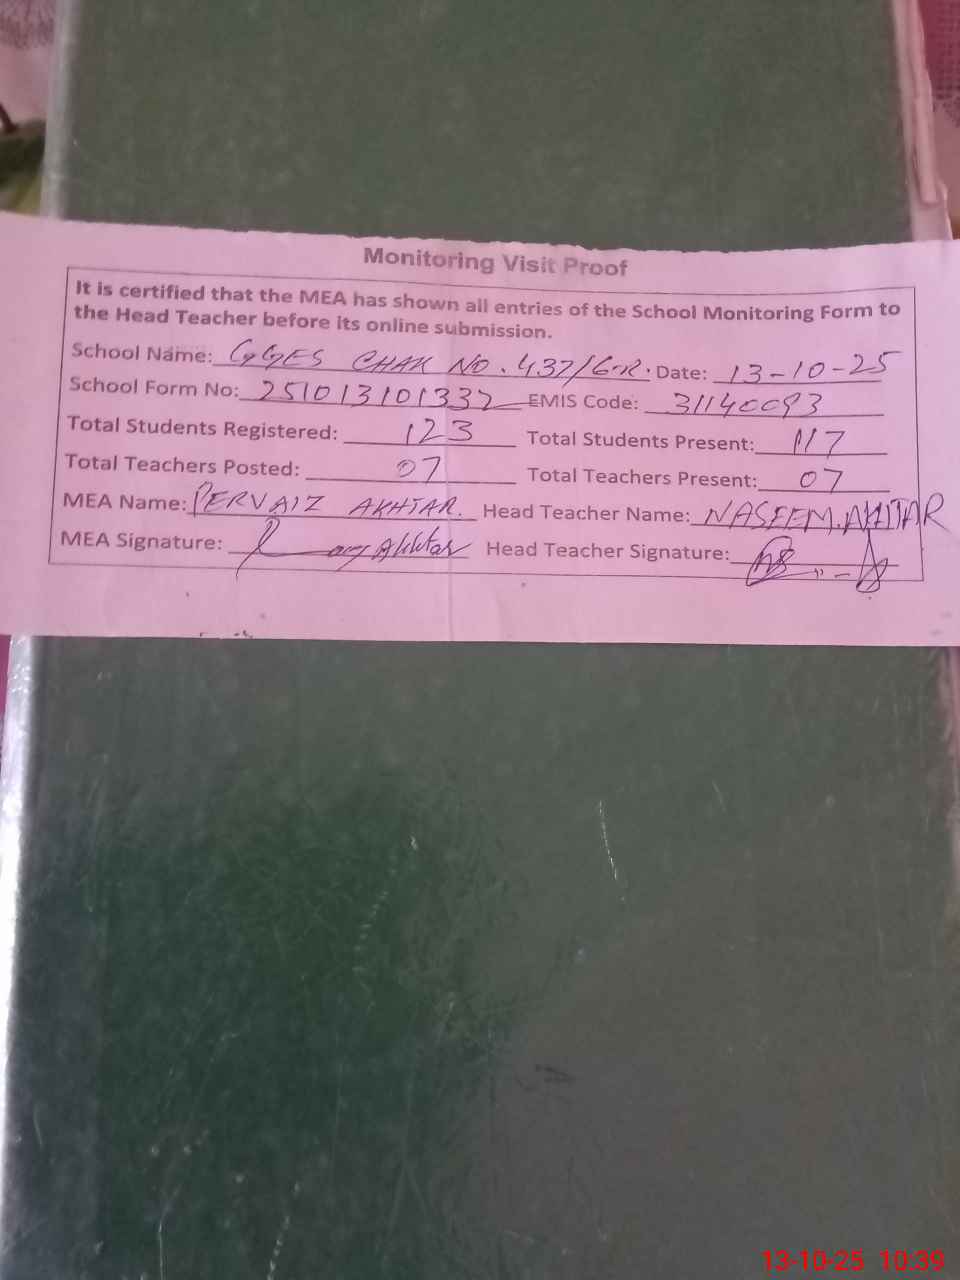 Monitoring Visit Proof
It is certified that the MEA has shown all entries of the School Monitoring Form to
the Head Teacher before its online submission.
School Name: GGES CHAK NO. 437/6-R. Date: 13-10-25
School Form No: 251013101332 EMIS Code: 31140093
Total Students Registered: 123 Total Students Present: 117
Total Teachers Posted: 07 Total Teachers Present: 07
MEA Name: PERVAIZ AKHTAR. Head Teacher Name: NASEEM.AKHTAR
MEA Signature: Head Teacher Signature:
13-10-25 10:39